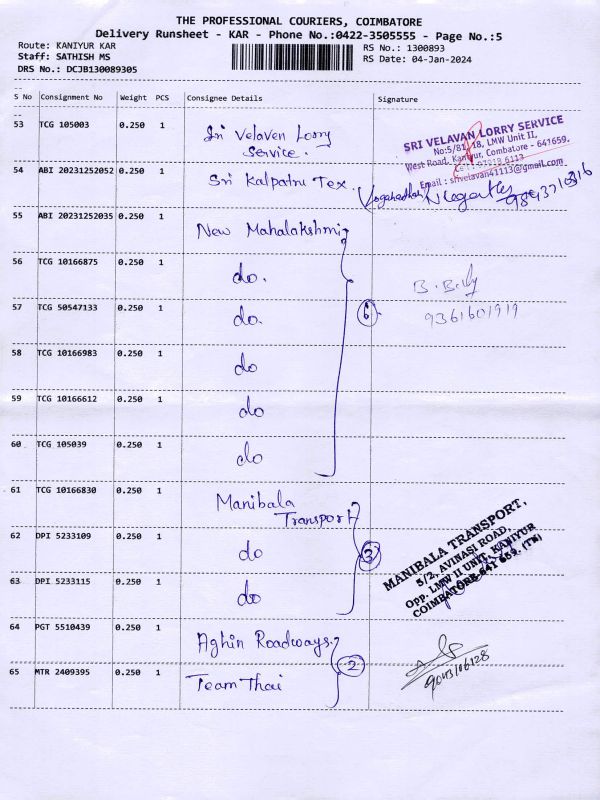 THE PROFESSIONAL COURIERS, COIMBATORE
Delivery Runsheet - KAR - Phone No.:0422-3505555 - Page No.:5
Route: KANIYUR KAR
RS No.: 1300893
Staff: SATHISH MS
RS Date: 04-Jan-2024
DRS No.: DCJB130089305
S No Consignment No Weight PCS Consignee Details Signature
53 TCG 105003 0.250 1 Sri Velaven Lorry
Service.
SRI VELAVAN LORRY SERVICE
No:5/81, 18, LMW Unit II,
West Road, Kaniyur, Combatore - 641659.
Email : srivelavan41113@gmail.com
54 ABI 20231252052 0.250 1 Sri Kalpatru Tex.
9843710316
55 ABI 20231252035 0.250 1 New Mahalakshmi
56 TCG 10166875 0.250 1 do.
57 TCG 50547133 0.250 1 do. 6
9361601919
58 TCG 10166983 0.250 1 do
59 TCG 10166612 0.250 1 do
60 TCG 105039 0.250 1 do
61 TCG 10166830 0.250 1 Manibala
Transport
MANIBALA TRANSPORT,
5/2, AVINASI ROAD,
Opp. LMW II UNIT, KANIYUR
COIMBATORE-641 659. (TN)
62 DPI 5233109 0.250 1 do 3
63 DPI 5233115 0.250 1 do
64 PGT 5510439 0.250 1 Aghin Roadways.
2
65 MTR 2409395 0.250 1 Team Thai
9043106128